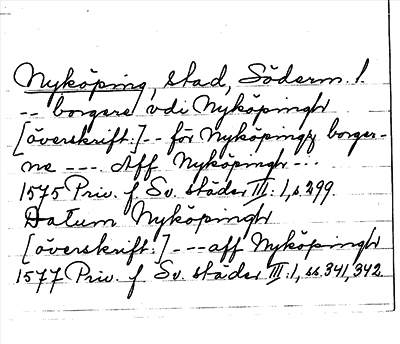 Nyköping, stad, Söderm. l.
-- borgere vdi Nyköpingh
[överskrift:]-- för Nyköpingz borger-
ne --- Aff Nyköpingh ---
1575 Priv. f Sv. städer III:1, s. 299.
Datum Nyköpingh
[överskrift:] --- aff Nyköpingh
1577 Priv. f Sv. städer III:1, ss. 341, 342.